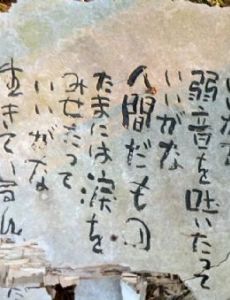 いいがな
弱音を吐いたって
いいがな
人間だもの
たまには涙を
みせたって
いいがな
生きている